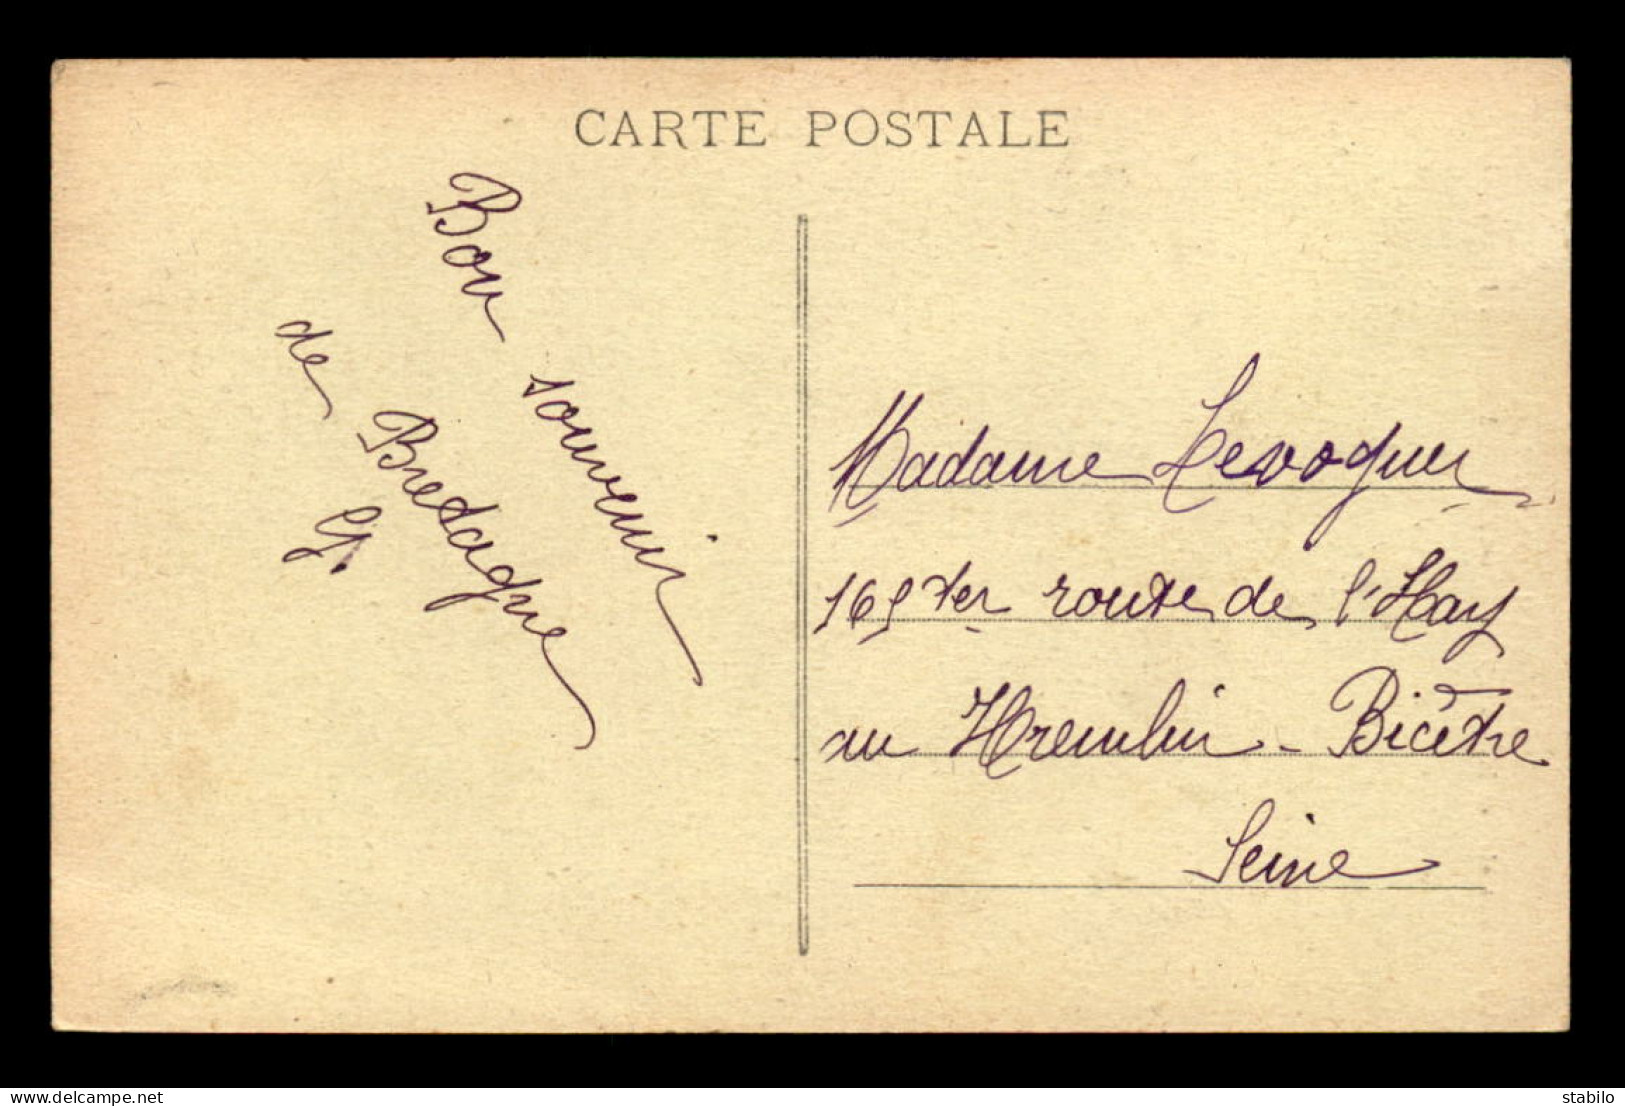 CARTE POSTALE
Bon souvenir
de Bretagne
G.
Madame Levoquer
165 ter route de l'Hay
au Kremlin-Bicêtre
Seine
delcampe.net
stabilo